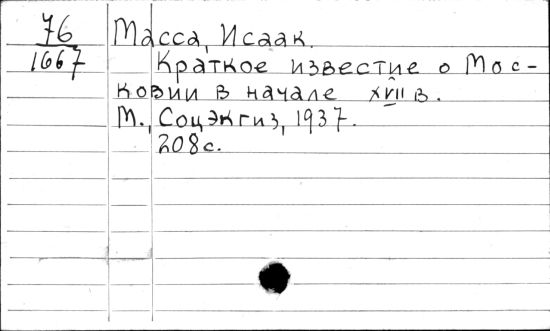 76 Масса, Исаак.
1667 Краткое известие о Мос-
ковии в начале XVII в.
М., Соцэкгиз, 1937.
208с.